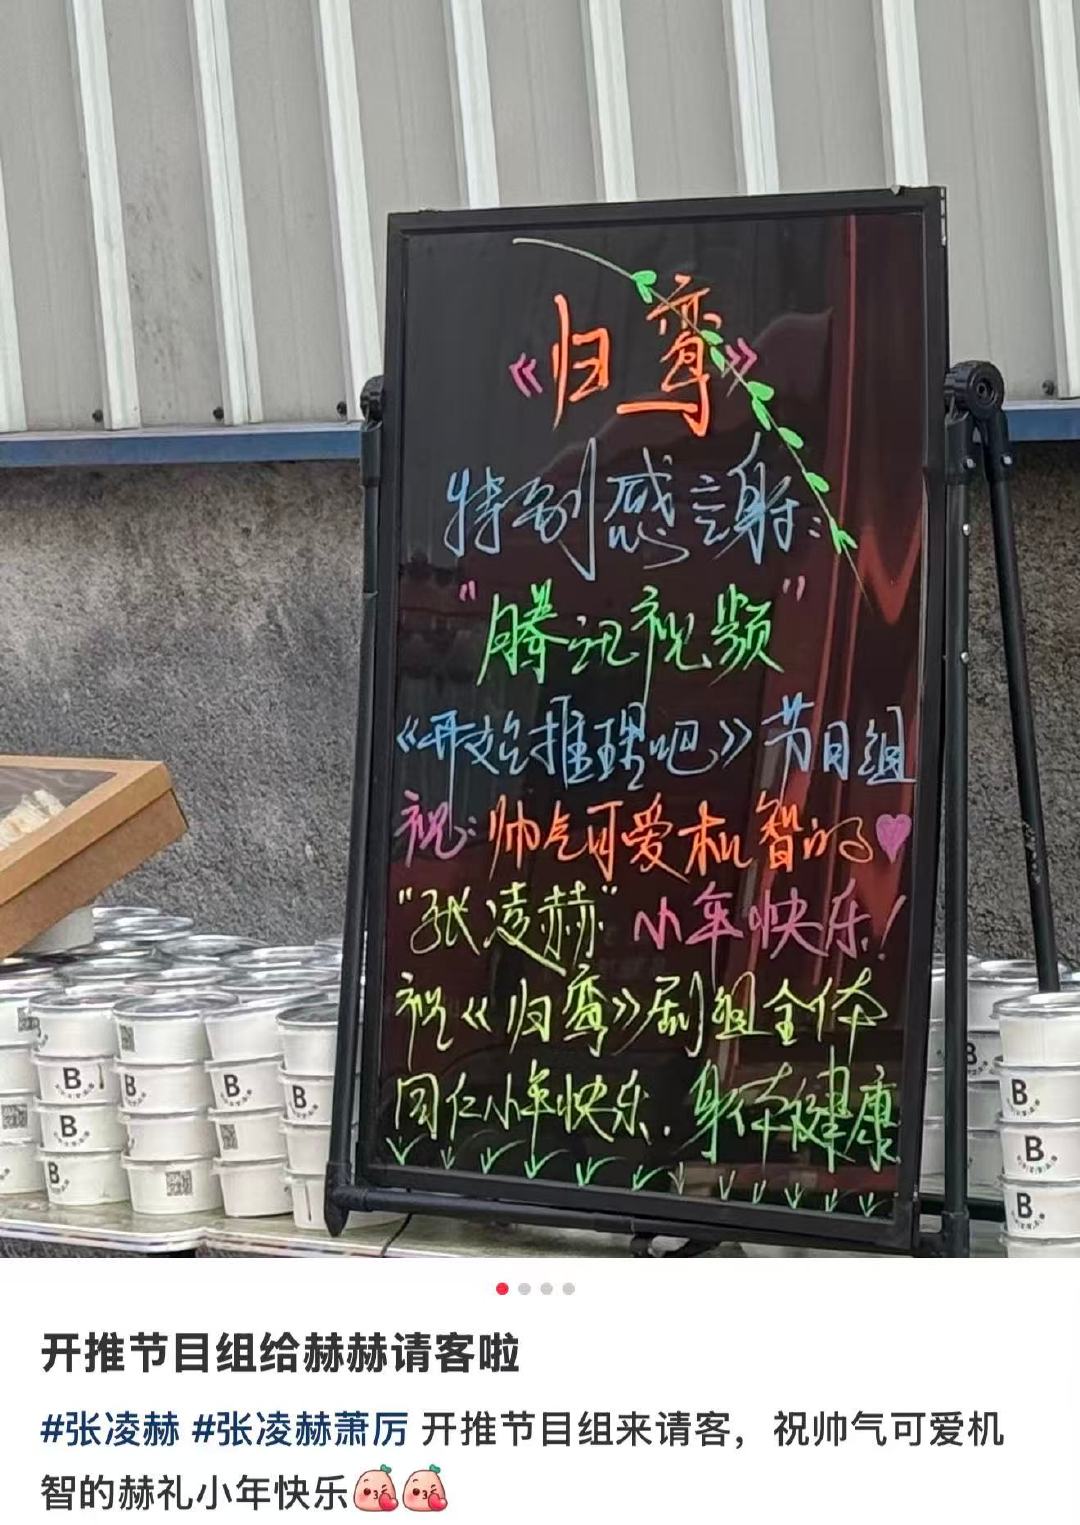 《归鸾》
特别感谢:
"腾讯视频"
《开始推理吧》节目组
祝:帅气可爱机智的
"张凌赫"小年快乐!
祝《归鸾》剧组全体
同仁小年快乐.身体健康
B.
B.
B.
B.
B.
B
B.
B.
B.
B.
开推节目组给赫赫请客啦
#张凌赫 #张凌赫萧厉 开推节目组来请客，祝帅气可爱机
智的赫礼小年快乐